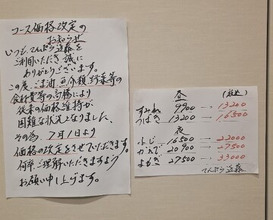 コース価格改定の
お知らせ
いつもてんぷら近藤を
ご利用いただき誠に
ありがとうございます。
この度、ごま油、魚類、野菜等の
食材費等の高騰により
従来の価格維持が
困難な状況となりました。
その為、7月1日より
価格の改定をさせていただきます。
何卒ご理解いただきますよう
お願い申し上げます。
昼 (税込)
すみれ 9900 → 13200
つばき 13200 → 16500
夜
ふじ 16500 → 22000
かえで 20900 → 27500
よもぎ 27500 → 33000
てんぷら近藤